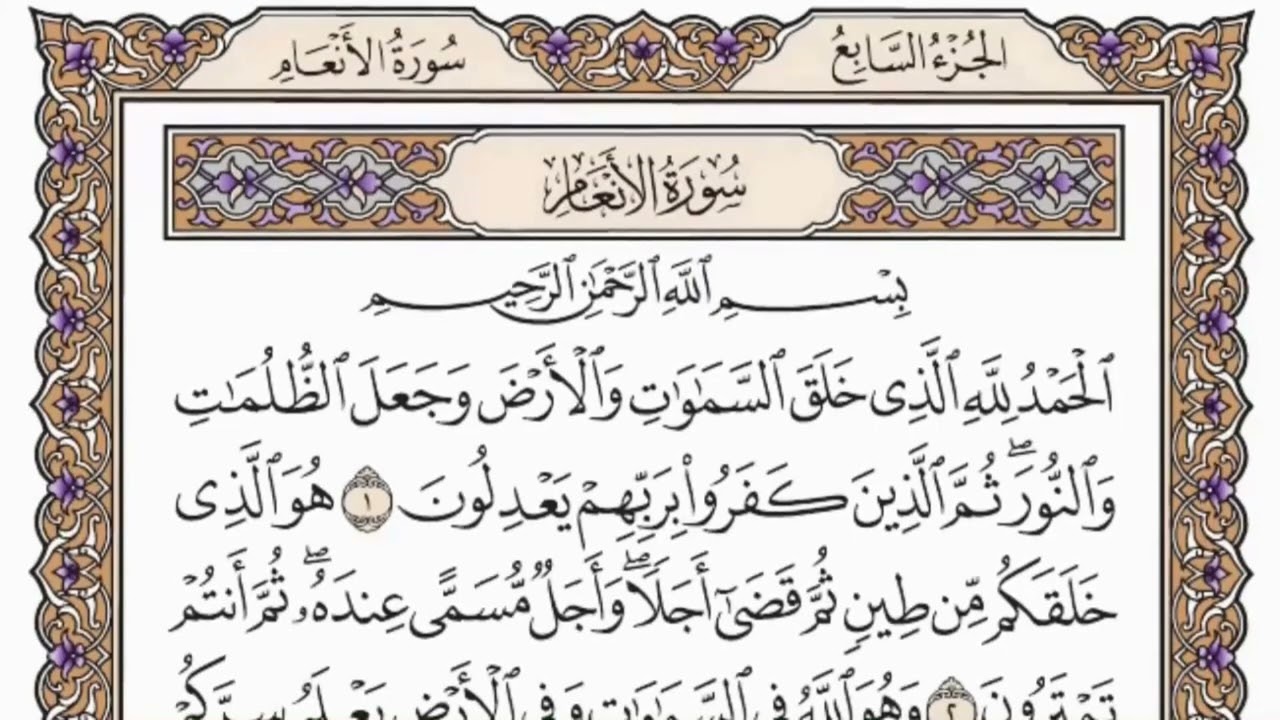 الجُزْءُ السَّابِعُ
سُورَةُ الأَنْعَامِ
سُورَةُ الأَنْعَامِ
بِسْمِ ٱللَّهِ ٱلرَّحْمَٰنِ ٱلرَّحِيمِ
ٱلْحَمْدُ لِلَّهِ ٱلَّذِى خَلَقَ ٱلسَّمَٰوَٰتِ وَٱلْأَرْضَ وَجَعَلَ ٱلظُّلُمَٰتِ
وَٱلنُّورَ ۖ ثُمَّ ٱلَّذِينَ كَفَرُوا۟ بِرَبِّهِمْ يَعْدِلُونَ ١ هُوَ ٱلَّذِى
خَلَقَكُم مِّن طِينٍ ثُمَّ قَضَىٰٓ أَجَلًا ۖ وَأَجَلٌ مُّسَمًّى عِندَهُۥ ۖ ثُمَّ أَنتُمْ
تَمْتَرُونَ ٢ وَهُوَ ٱللَّهُ فِى ٱلسَّمَٰوَٰتِ وَفِى ٱلْأَرْضِ يَعْلَمُ سِرَّكُمْ